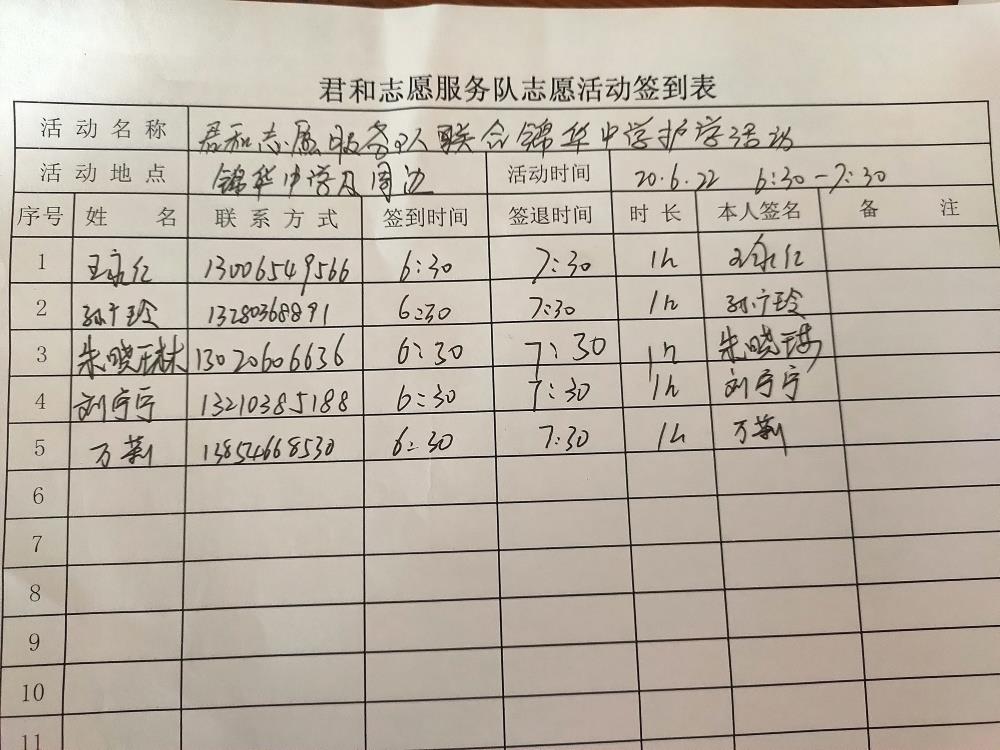 君和志愿服务队志愿活动签到表
活动名称 君和志愿服务队联合锦华中学护学活动
活动地点 锦华中学及周边 活动时间 20.6.22 6:30-7:30
序号 姓名 联系方式 签到时间 签退时间 时长 本人签名 备注
1 王永仁 13006549566 6:30 7:30 1h 王永仁
2 孙广玲 13280368891 6:30 7:30 1h 孙广玲
3 朱晓琳 13020606636 6:30 7:30 1h 朱晓琳
4 刘宁宁 13210385188 6:30 7:30 1h 刘宁宁
5 万 13854668530 6:30 7:30 1h 万
6
7
8
9
10
11